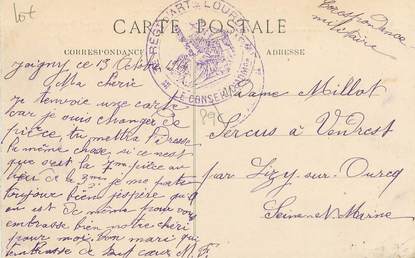 lot
Correspondance
militaire
CARTE POSTALE
CORRESPONDANCE
ADRESSE
Joigny ce 13 Octobre
Ma chérie
Je t'envoie une carte
car je vais changer de
pièce, tu mettra
la même chose si ce nest
que c'est la 7me pièce au
lieu de la 3me je me porte
toujour bien j'espère qu'il
en est de même pour vous
embrasse bien notre chéri
pour moi. Ton mari qui
embrasse de tout cœur M. F.
Dame Millot
Sercus à Vendrest
par Lizy-sur-Ourcq
Seine et Marne